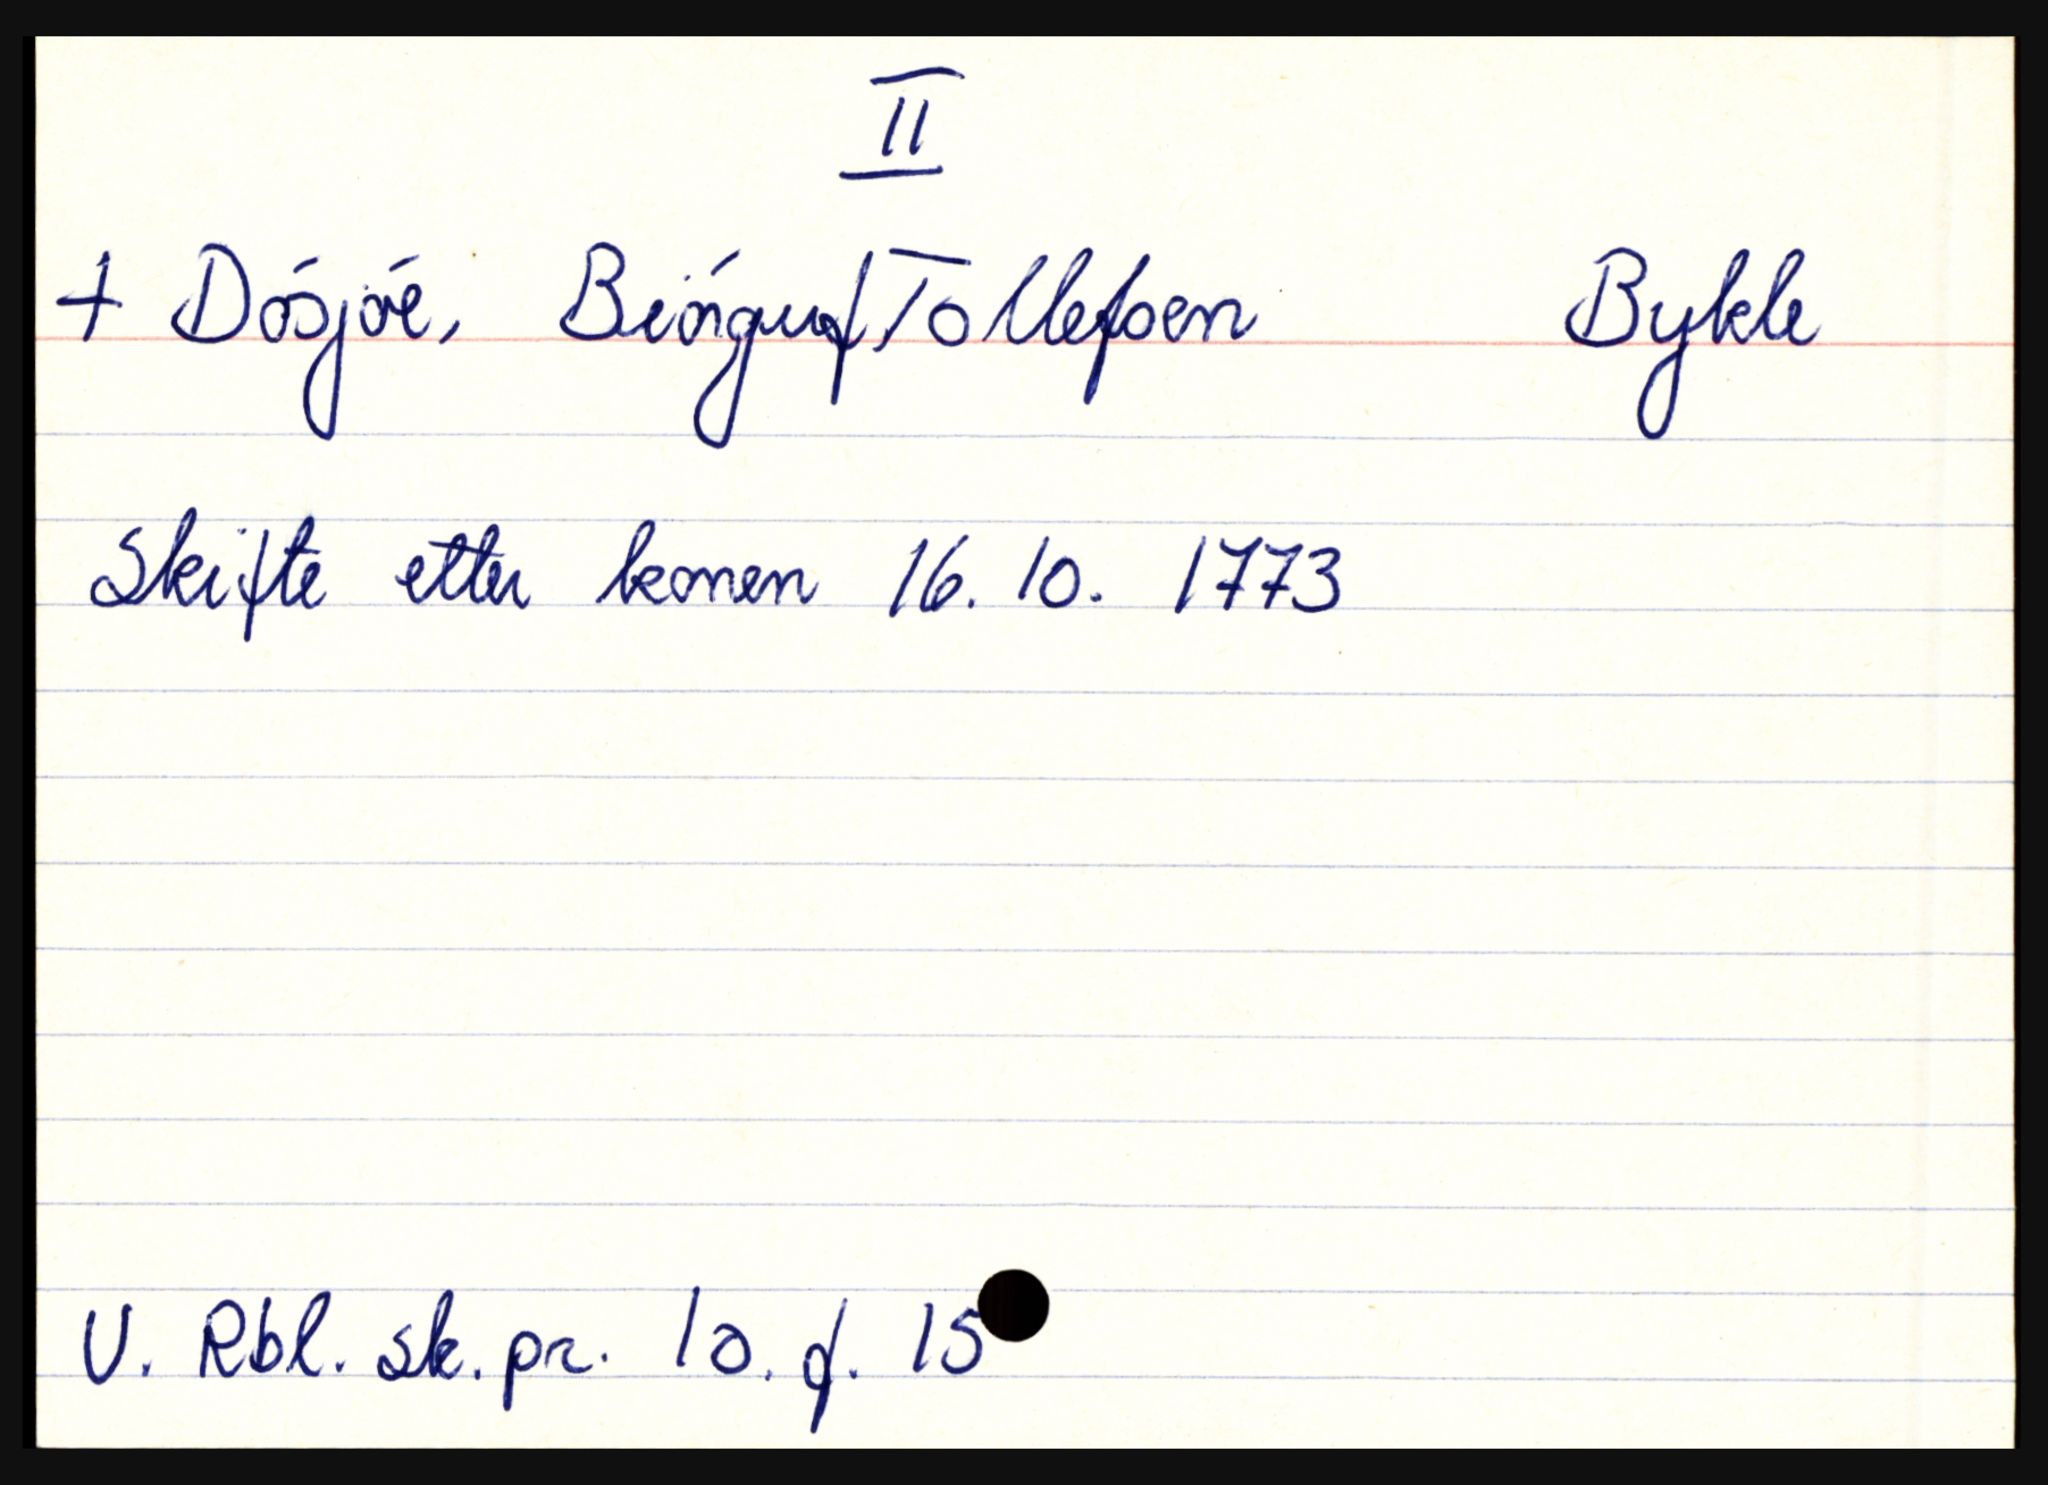 II
+ Dósjóe, Biórguf Tollefsen Bykle
Skifte etter konen 16. 10. 1773
V. Rbl. sk. pr. 10. f. 15